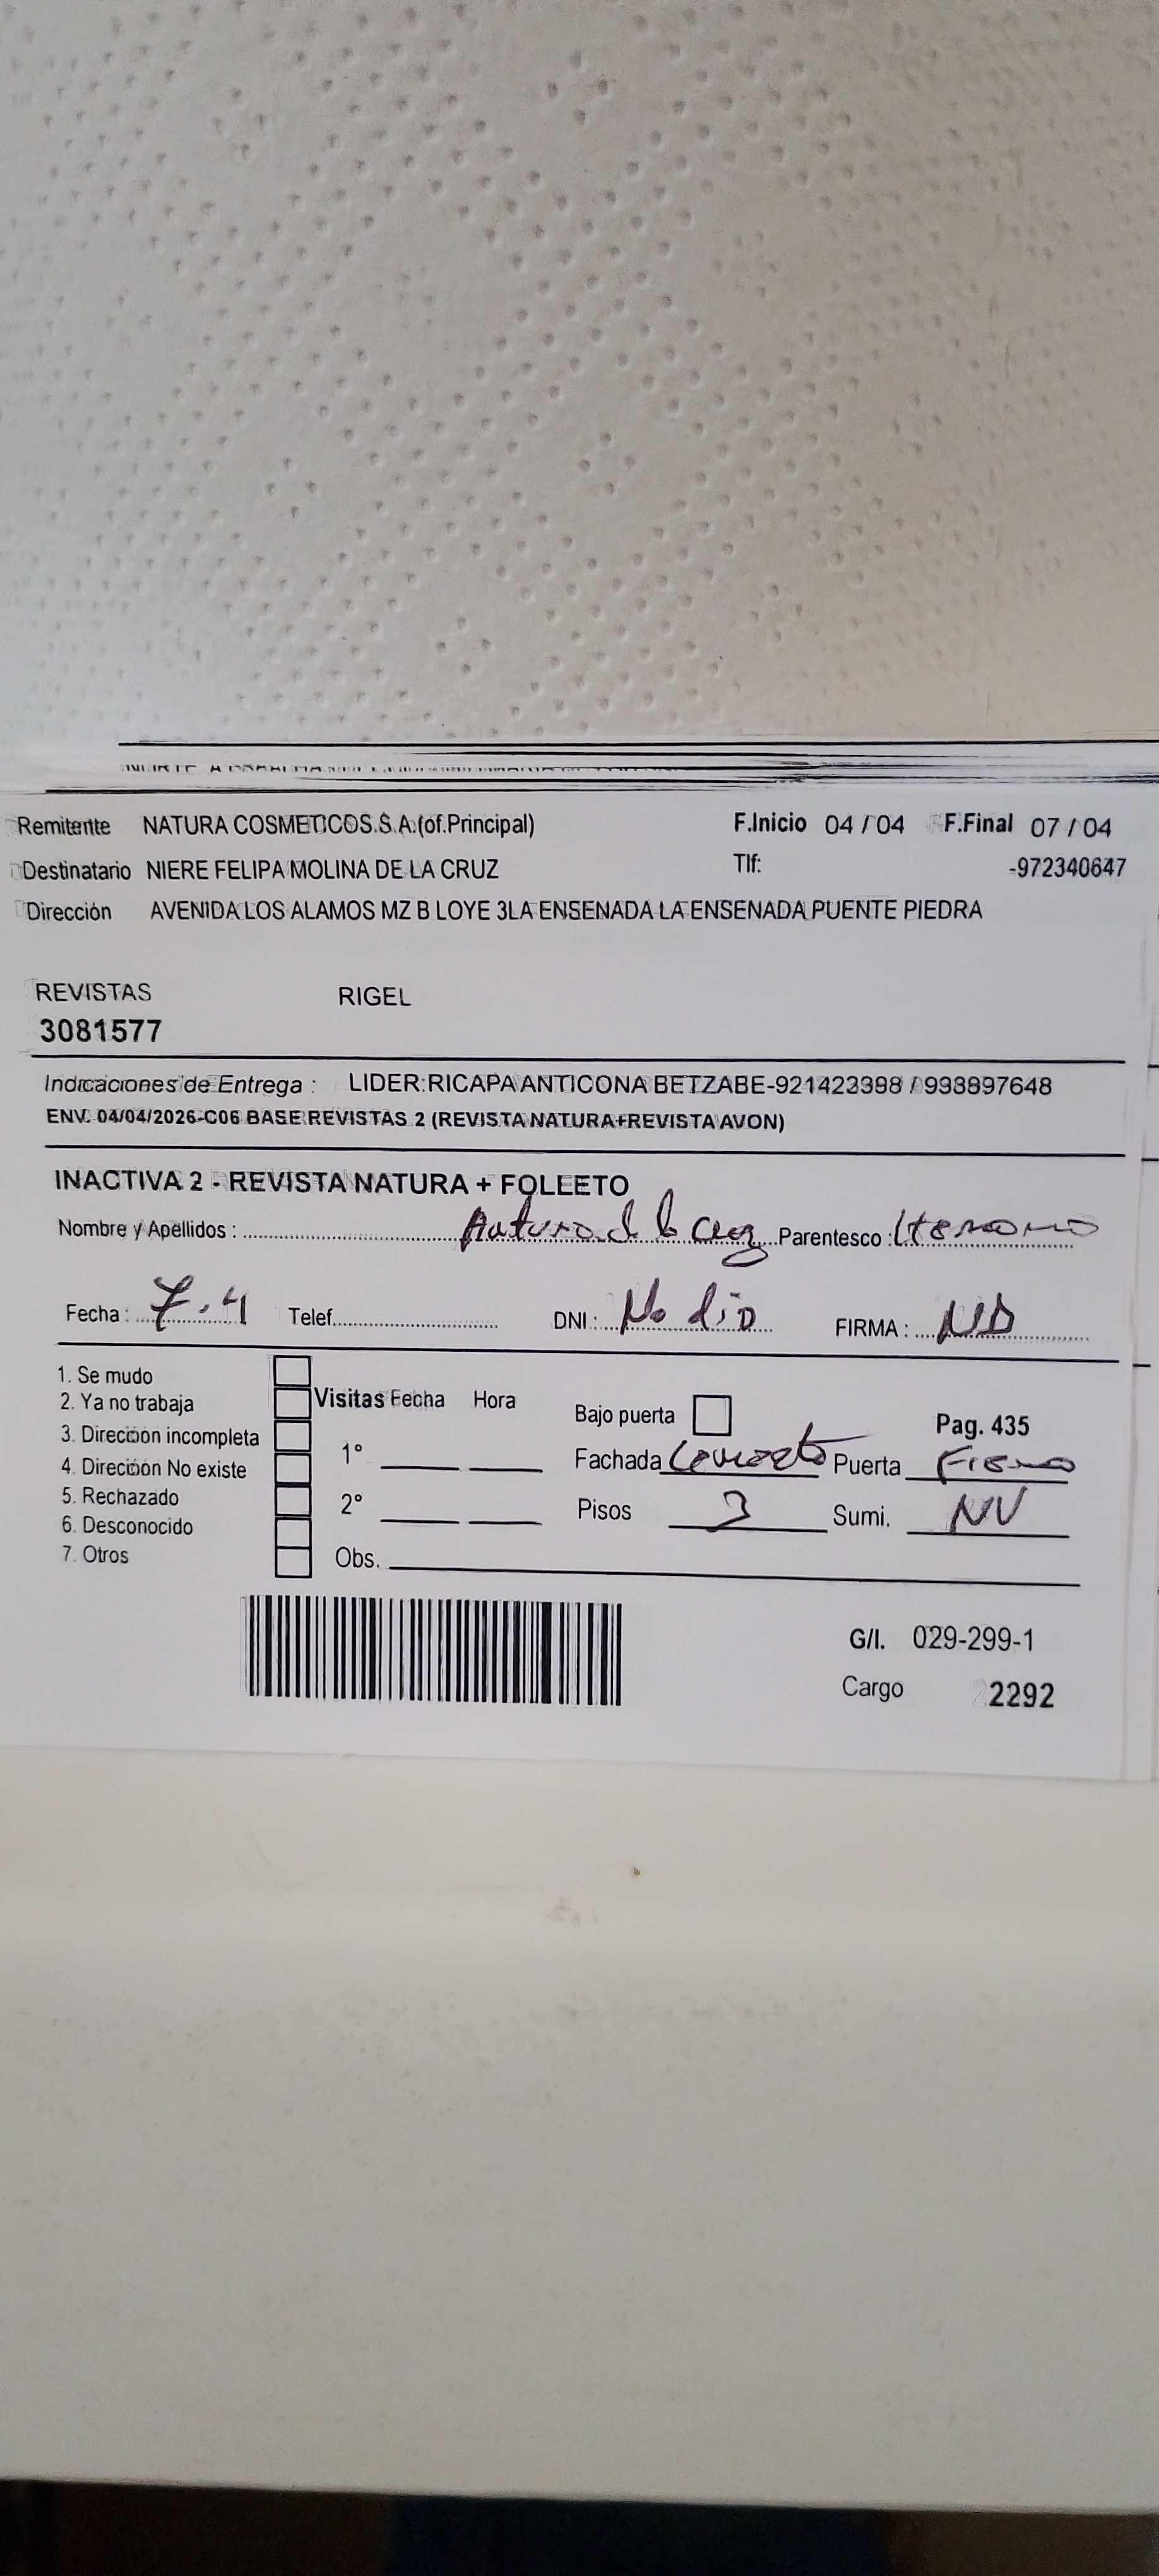 Remitente NATURA COSMETICOS.S.A.(of.Principal) F.Inicio 04 / 04 F.Final 07 / 04
Destinatario NIERE FELIPA MOLINA DE LA CRUZ Tlf: -972340647
Dirección AVENIDA LOS ALAMOS MZ B LOYE 3LA ENSENADA LA ENSENADA PUENTE PIEDRA
REVISTAS RIGEL
3081577
Indicaciones de Entrega : LIDER:RICAPA ANTICONA BETZABE-921423398 / 933897648
ENV. 04/04/2026-C06 BASE REVISTAS 2 (REVISTA NATURA+REVISTA AVON)
INACTIVA 2 - REVISTA NATURA + FOLLETO
Nombre y Apellidos : Arturo de la Cruz Parentesco : Hermano
Fecha : 7.4 Telef. DNI : No dio FIRMA : ND
1. Se mudo
2. Ya no trabaja Visitas Fecha Hora Bajo puerta Pag. 435
3. Dirección incompleta
4. Dirección No existe 1° Fachada Concreto Puerta Fierro
5. Rechazado
6. Desconocido 2° Pisos 3 Sumi. NV
7. Otros Obs.
G/I. 029-299-1
Cargo 2292